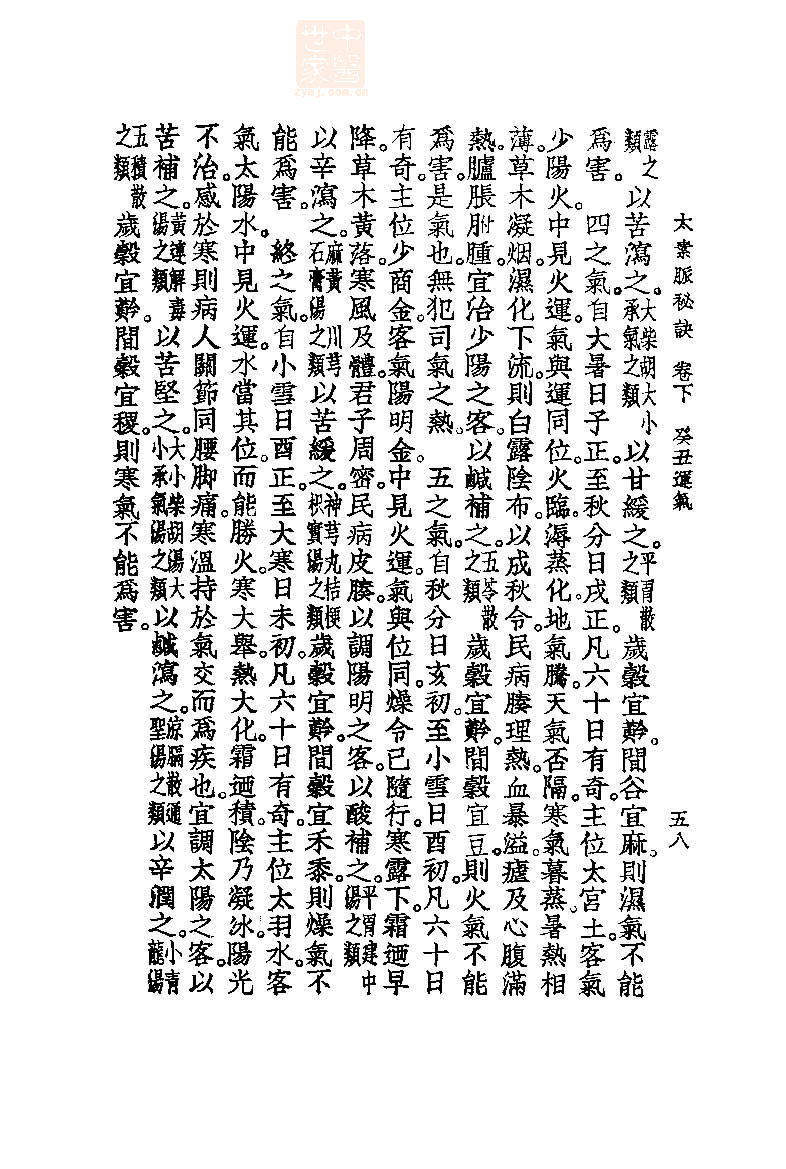 中醫世家
zysj.com.cn
太素脈秘訣　卷下　癸丑運氣　五八
露之類以苦瀉之。大柴胡大小承氣之類以甘緩之。平胃散之類歲穀宜䵖。間谷宜麻。則濕氣不能
爲害。　四之氣。自大暑日子正。至秋分日戌正。凡六十日有奇。主位太宮土。客氣
少陽火。中見火運。氣與運同位。火臨。溽蒸化。地氣騰。天氣否隔。寒氣暮蒸。暑熱相
薄。草木凝烟。濕化下流。則白露陰布。以成秋令。民病腠理熱。血暴溢。瘧及心腹滿
熱。臚脹胕腫。宜治少陽之客。以鹹補之。五苓散之類歲穀宜䵖。間穀宜豆。則火氣不能
爲害。是氣也。無犯司氣之熱。　五之氣。自秋分日亥初。至小雪日酉初。凡六十日
有奇。主位少商金。客氣陽明金。中見火運。氣與位同。燥令已隨行。寒露下。霜迺早
降。草木黃落。寒風及體。君子周密。民病皮腠。以調陽明之客。以酸補之。平胃建中湯之類
以辛瀉之。麻黃川芎石膏湯之類以苦緩之。神芎丸桔梗枳實湯之類歲穀宜䵖。間穀宜禾黍。則燥氣不
能爲害。　終之氣。自小雪日酉正。至大寒日未初。凡六十日有奇。主位太羽水。客
氣太陽水。中見火運。水當其位。而能勝火。寒大舉。熱大化。霜迺積。陰乃凝冰。陽光
不治。感於寒則病人關節同腰脚痛。寒溫持於氣交而爲疾也。宜調太陽之客。以
苦補之。黃連解毒湯之類以苦堅之。大小柴胡湯大小承氣湯之類以鹹瀉之。涼膈散通聖湯之類以辛潤之。小青龍湯
五積散之類歲穀宜䵖。間穀宜稷。則寒氣不能爲害。